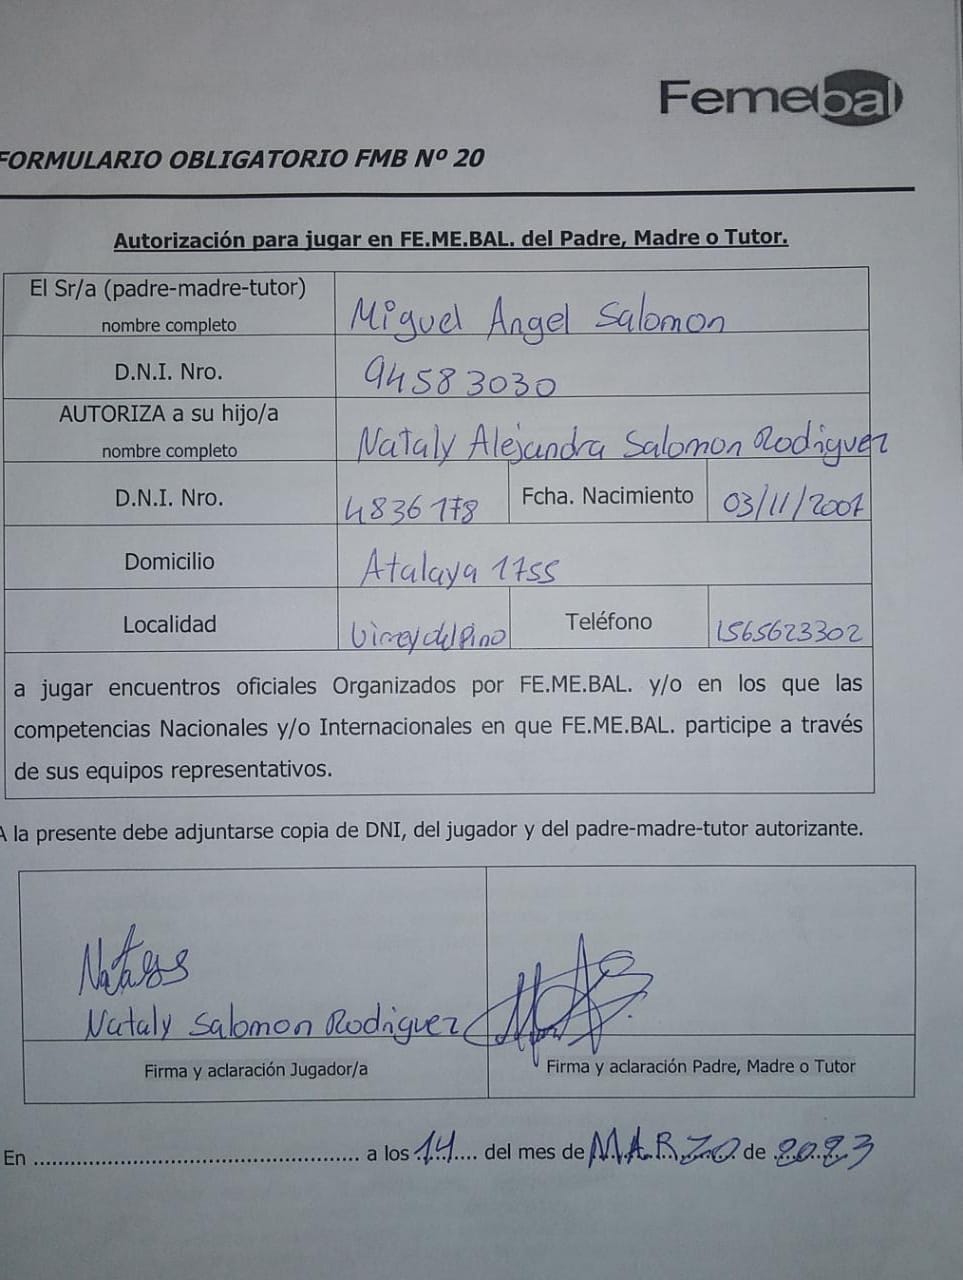 Femebal
FORMULARIO OBLIGATORIO FMB Nº 20
Autorización para jugar en FE.ME.BAL. del Padre, Madre o Tutor.
El Sr/a (padre-madre-tutor)
nombre completo
Miguel Angel Salomon
D.N.I. Nro.
94583030
AUTORIZA a su hijo/a
nombre completo
Nataly Alejandra Salomon Rodriguez
D.N.I. Nro.
4836178
Fcha. Nacimiento
03/11/2007
Domicilio
Atalaya 1755
Localidad
Virrey del Pino
Teléfono
1565623302
a jugar encuentros oficiales Organizados por FE.ME.BAL. y/o en los que las
competencias Nacionales y/o Internacionales en que FE.ME.BAL. participe a través
de sus equipos representativos.
A la presente debe adjuntarse copia de DNI, del jugador y del padre-madre-tutor autorizante.
Nataly Salomon Rodriguez
Firma y aclaración Jugador/a
Firma y aclaración Padre, Madre o Tutor
En ........................................ a los 14 .... del mes de MARZO de 2023